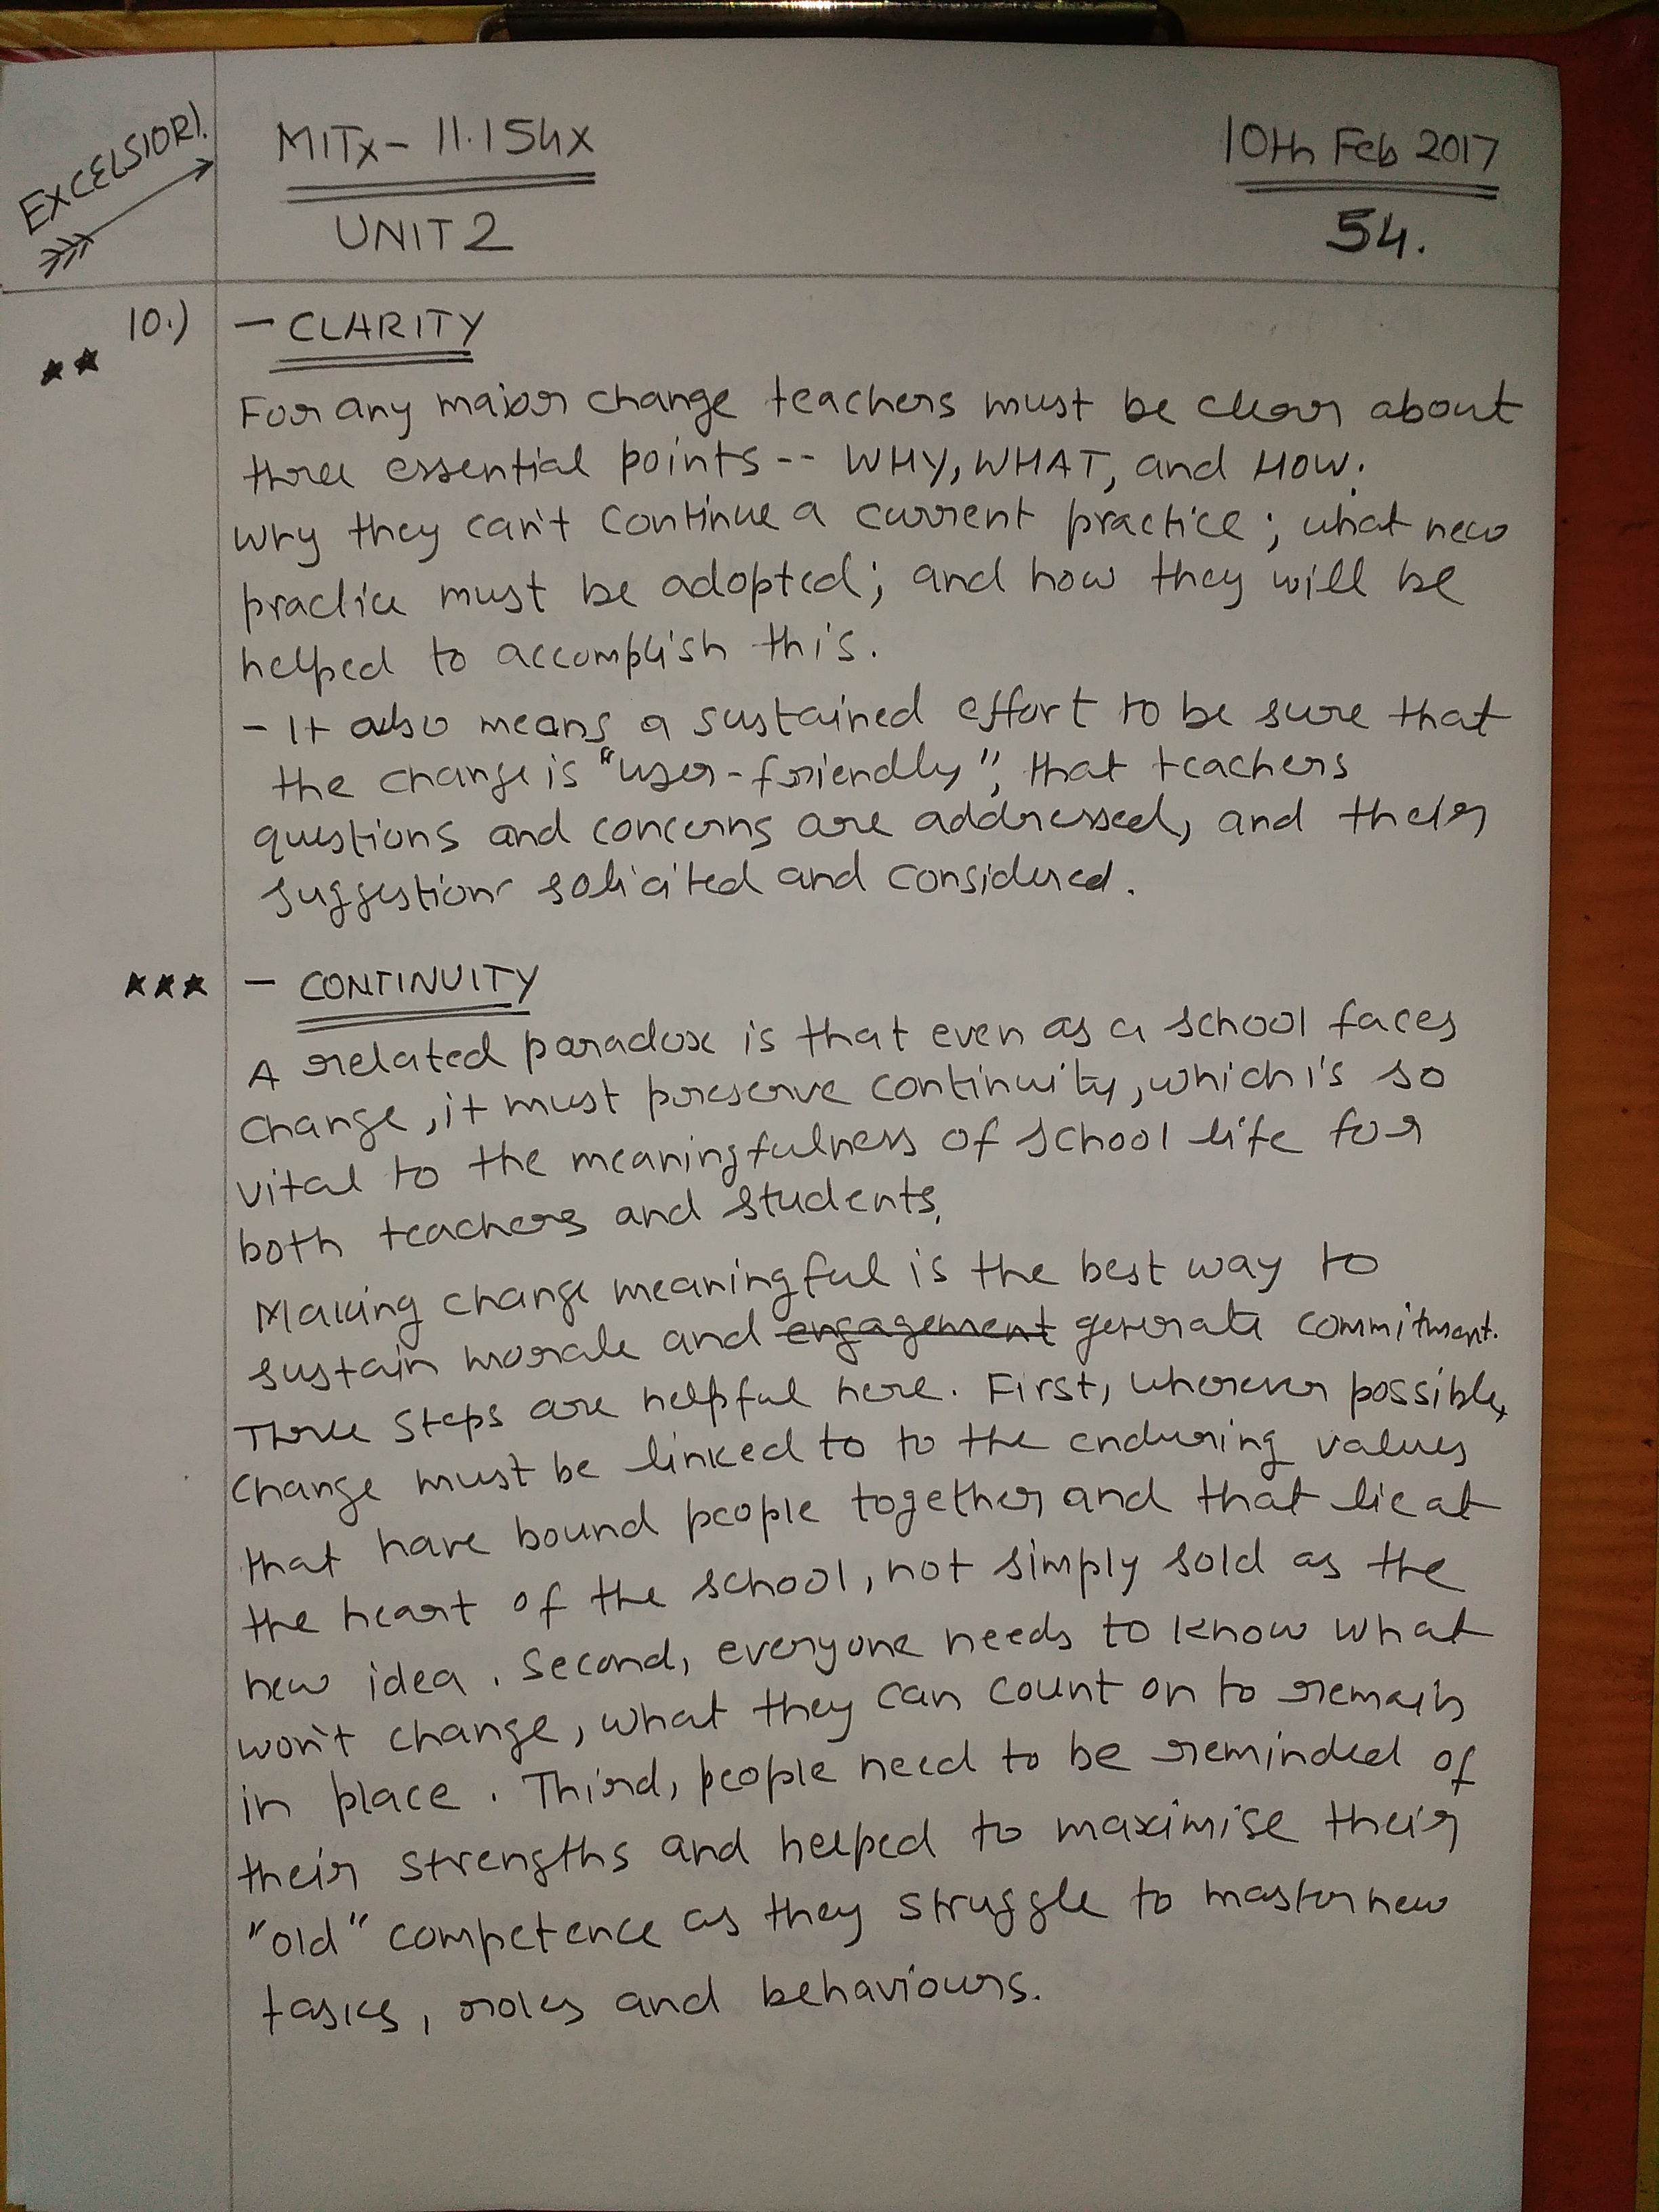 EXCELSIOR!
MITx- 11.154x
10th Feb 2017
UNIT 2
54.
10.) - CLARITY
For any major change teachers must be clear about
three essential points -- WHY, WHAT, and HOW.
Why they can't continue a current practice; what new
practice must be adopted; and how they will be
helped to accomplish this.
- It also means a sustained effort to be sure that
the change is "user-friendly", that teachers
questions and concerns are addressed, and their
suggestions solicited and considered.
- CONTINUITY
A related paradox is that even as a school faces
change, it must preserve continuity, which is so
vital to the meaningfulness of school life for
both teachers and students.
Making change meaningful is the best way to
sustain morale and engagement generate commitment.
Three steps are helpful here. First, wherever possible,
change must be linked to to the enduring values
that have bound people together, and that lie at
the heart of the school, not simply sold as the
new idea. Second, everyone needs to know what
won't change, what they can count on to remain
in place. Third, people need to be reminded of
their strengths and helped to maximise their
"old" competence as they struggle to master new
tasks, roles and behaviours.